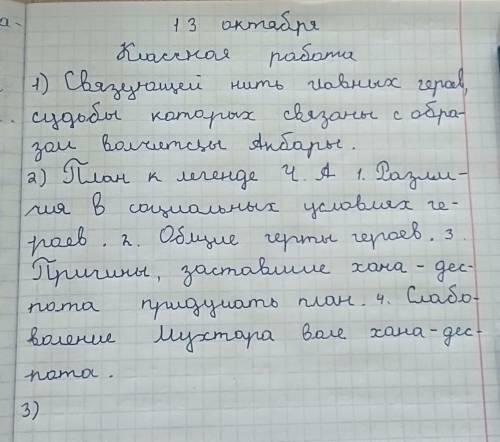 13 октября
Классная работа
1) Связующей нить главных героев,
судьбы которых связаны с обра-
зом волчетсцы Акбары.
2) План к легенде Ч. А 1. Разли-
чия в социальных условиях ге-
раев. 2. Общие черты героев. 3.
Причины, заставшие хана-дес-
пота придумать план. 4. Слабо-
воление Мухтара воле хана-дес-
пота.
3)